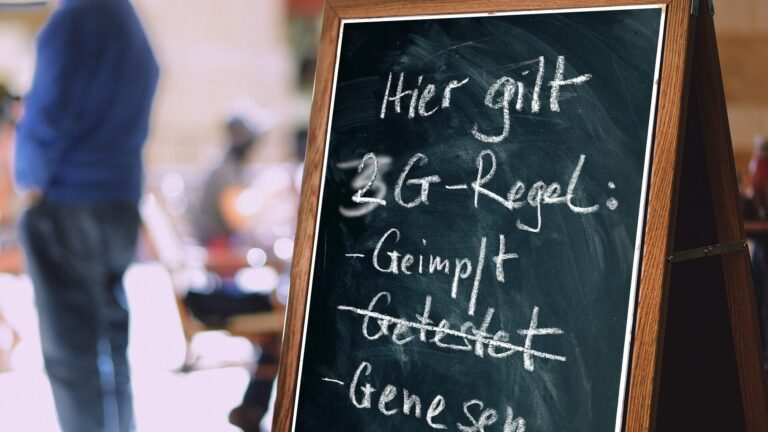 Hier gilt
2G-Regel:
- Geimpft
- Getestet
- Genesen